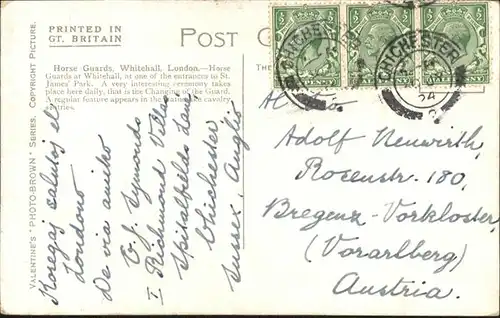 PRINTED IN
GT. BRITAIN
POST
Horse Guards, Whitehall, London.—Horse
Guards at Whitehall, at one of the entrances to St.
James' Park. A very interesting ceremony takes
place here daily, that is the Changing of the Guard.
A regular feature appears in the cavalry
sentries.
VALENTINE'S "PHOTO-BROWN" SERIES. COPYRIGHT PICTURE.
THE
CHICHESTER
CHICHESTER
24
Koregaj salutoj el
Londono
De via amiko
C. J. Symonds
I Richmond Villas
Spitalfields Lane
Chichester
Sussex, Anglio
Al
Adolf Neuwirth
Rosenstr. 180,
Bregenz-Vorkloster,
(Vorarlberg)
Austria.